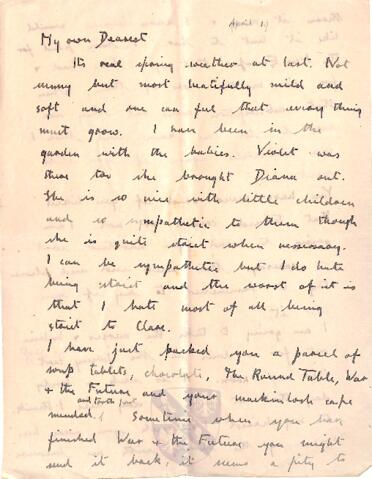 April 1
My own Dearest
Its real spring weather at last. Not
sunny but most beatifully mild and
soft and one can feel that every thing
must grow. I have been in the
garden with the babies. Violet was
there too she brought Diana out.
She is so nice with little children
and so sympathetic to them though
she is quite strict when necessary.
I can be sympathetic but I do hate
being strict and the worst of it is
that I hate most of all being
strict to Clare.
I have just packed you a parcel of
soup tablets, chocolate, The Round Table, War
& the Future and your mackintosh cape
and
mended. Sometime when you have
finished War & the Future you might
send it back, it seems a pity to